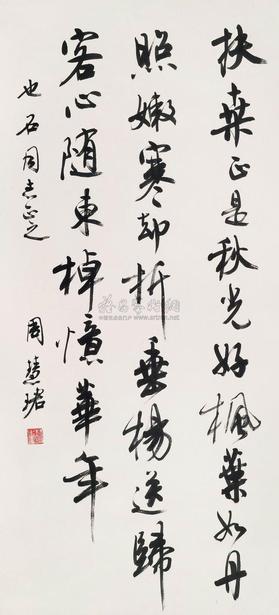 扶桒正是秋光好楓葉如丹
照嫩寒却折垂楊送歸
客心随東棹憶華年
也石同志正之
周慧珺